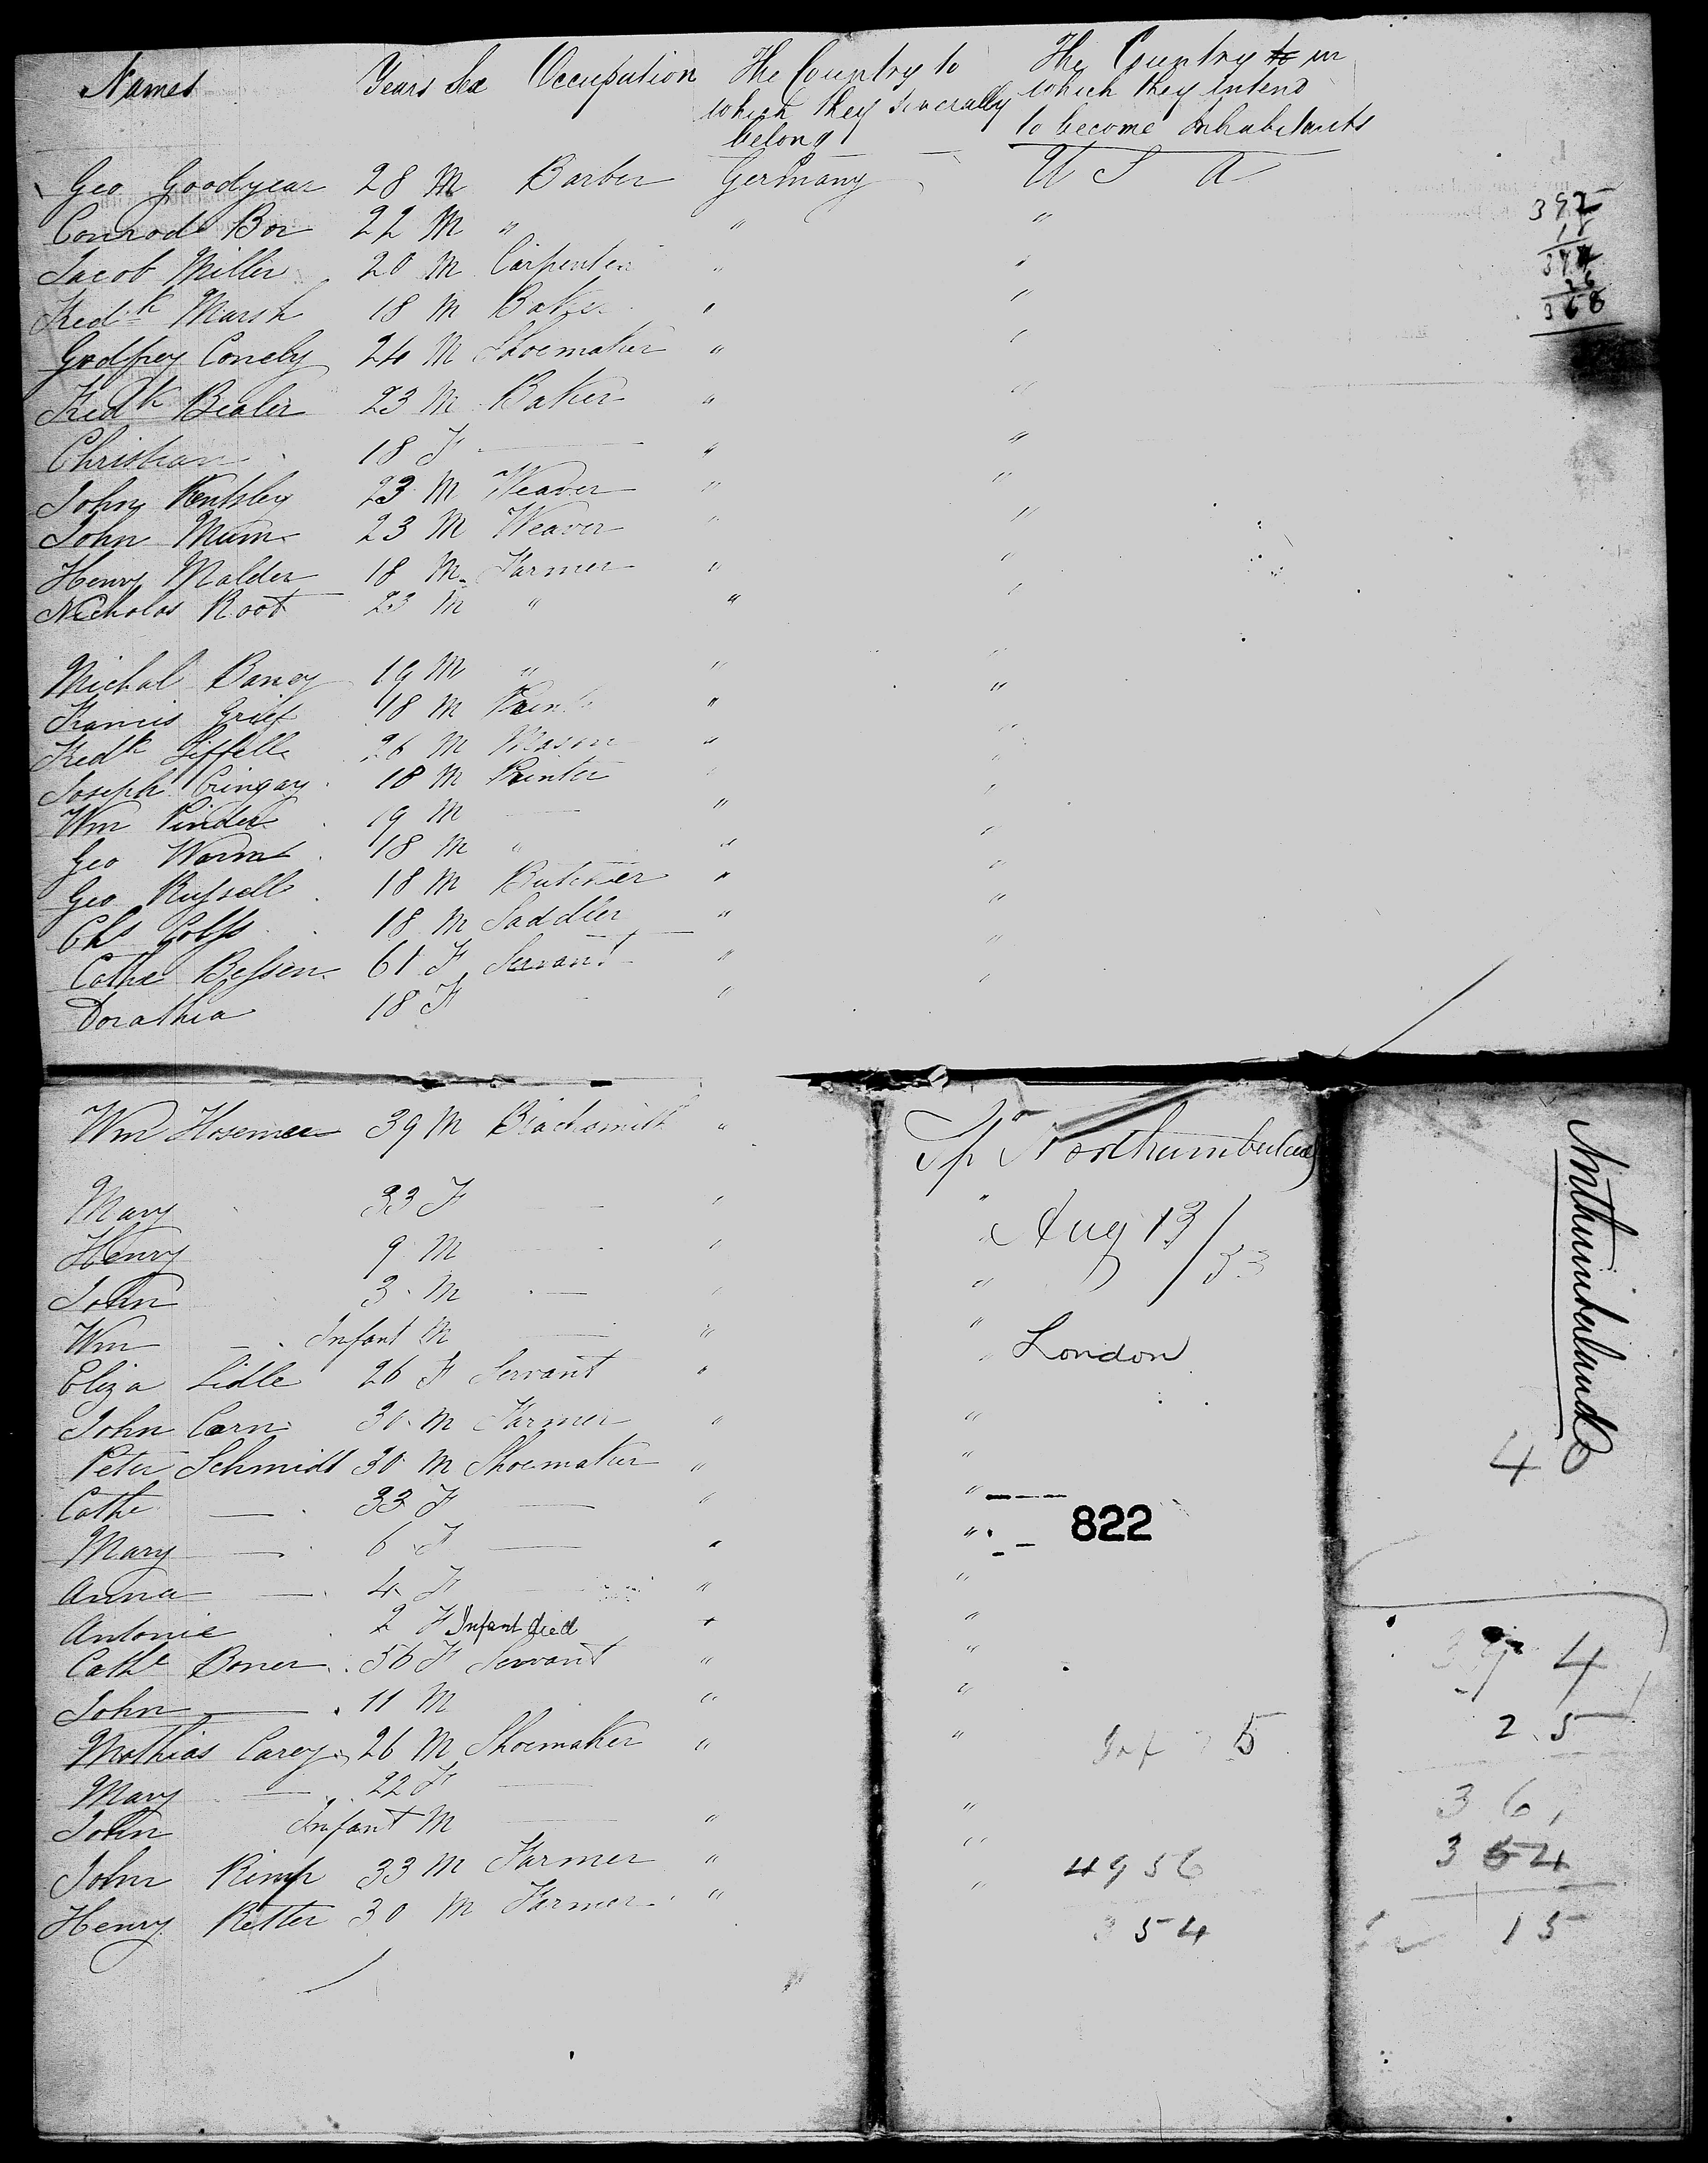 Names Years Sex Occupation The Country to The Country to in
which they severally which they intend
belong to become Inhabitants
Geo Goodyear 28 M Barber Germany U S A
Conrod Bor 22 M " " "
Jacob Miller 20 M Carpenter " "
Fredk Marsh 18 M Baker " "
Godfrey Conely 24 M Shoemaker " "
Fredk Bealer 23 M Baker " "
Christian 18 F — " "
John Kentsley 23 M Weaver " "
John Mum 23 M Weaver " "
Henry Malder 18 M Farmer " "
Nicholas Root 23 M " " "
Michal Baney 19 M " " "
Francis Grief 18 M " "
Fredk Siffell 26 M Mason " "
Joseph Cringary 18 M Painter " "
Wm Pinder 19 M — " "
Geo Warmt 18 M " " "
Geo Russell 18 M Butcher " "
Chs Colss 18 M Saddler " "
Cathe Bessen 61 F Servant " "
Dorathea 18 F " "
392
18
374
26
368
Wm Hosemee 39 M Blacksmith "
Mary 33 F — " "
Henry 9 M — " "
John 3 M — " "
Wm — Infant M — " "
Eliza Sidle 26 F Servant " "
John Carn 30 M Farmer " "
Peter Schmidt 30 M Shoemaker " "
Cathe — 33 F — " "
Mary — 6 F — " "
Anna — 4 F — " "
Antonie 2 F Infant died + "
Cathe Boner 56 F Servant " "
John — 11 M " "
Mathias Carey 26 M Shoemaker " "
Mary — 22 F —
John Infant M — " "
John Rimp 33 M Farmer " "
Henry Retter 30 M Farmer " "
Sp Northumberland
Aug 13/33
London
822
Inf 5
4956
354
Northumberland
4
394
25
36
354
15